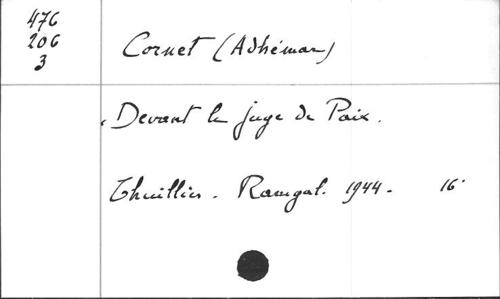 476
206
3
Cornet (Adhémar)
Devant le juge de Paix.
Thuillies. Ramgal. 1944. 16°